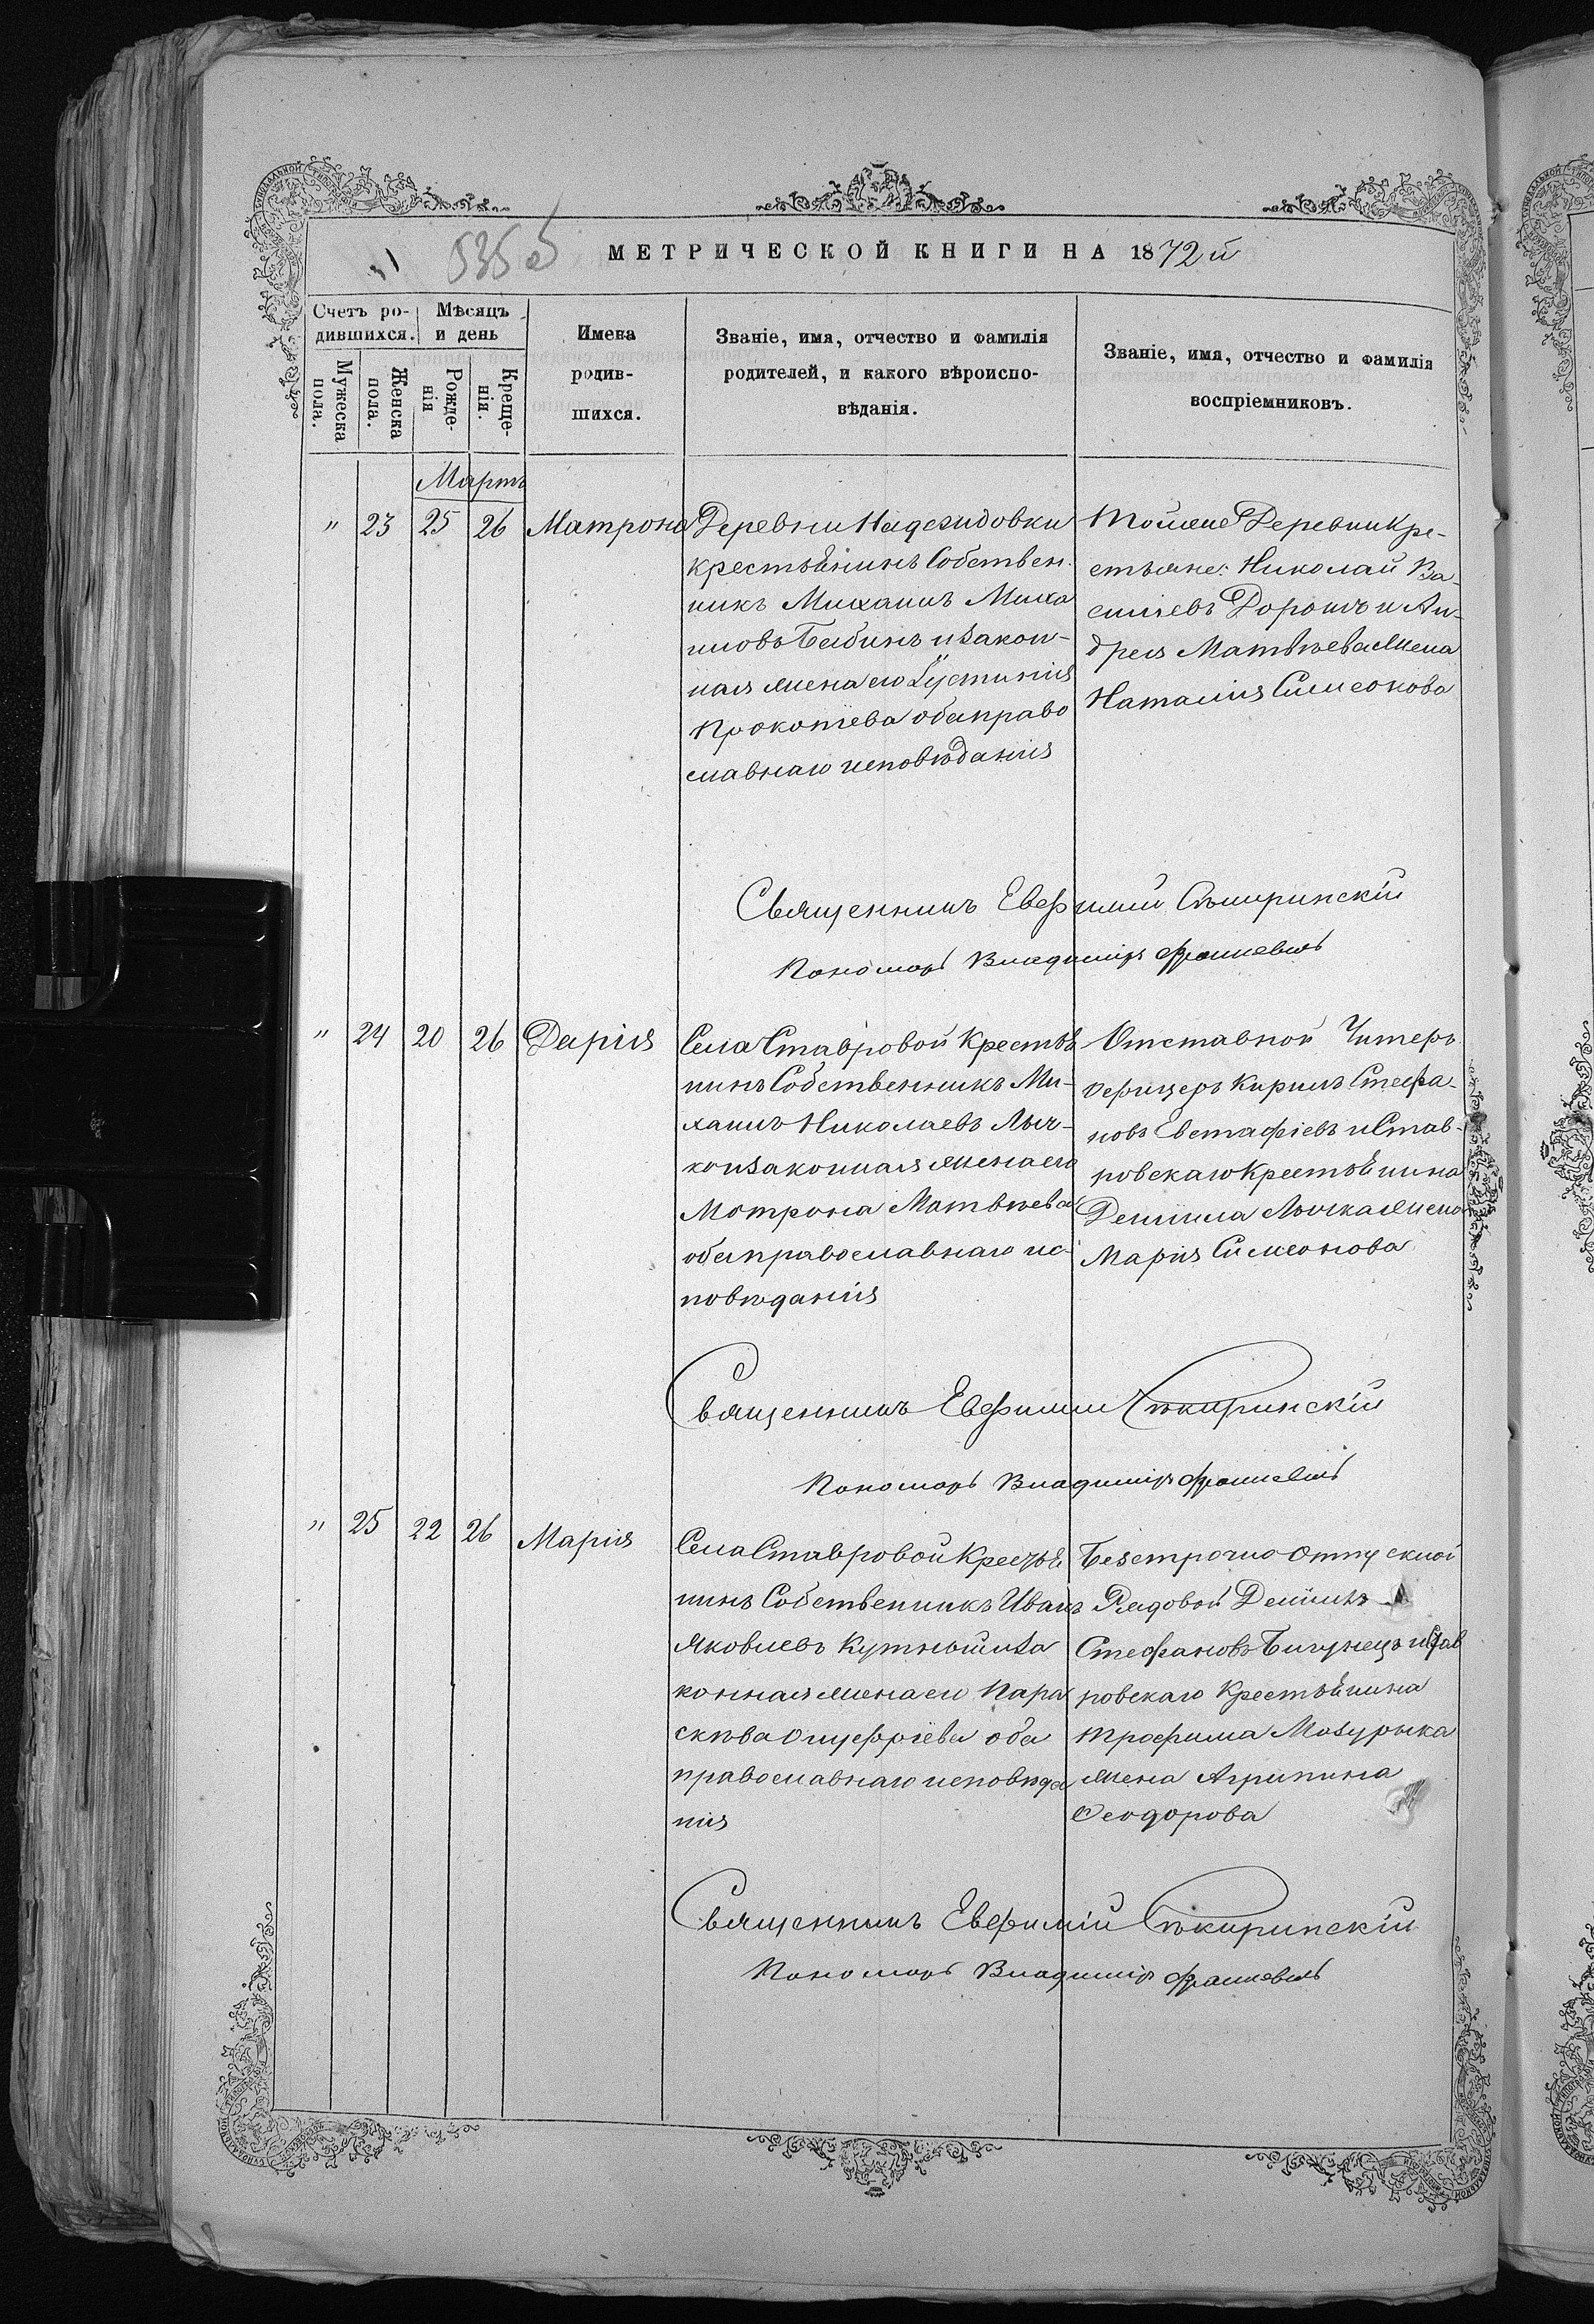 535 об
МЕТРИЧЕСКОЙ КНИГИ НА 1872й
Счетъ ро-
дившихся.
Мѣсяцъ
и день
Мужеска
пола.
Женска
пола.
Рожде-
нія
Креще-
нія.
Имена
родив-
шихся.
Званіе, имя, отчество и фамилія
родителей, и какого вѣроиспо-
вѣданія.
Званіе, имя, отчество и фамилія
воспріемниковъ.
Мартъ
" 23 25 26 Матрона
Деревни Надезидовки
крестьянинъ Собствен.
никъ Михаилъ Миха
иловъ Бабинъ и закон-
ная жена его Іустинія
Прокопіева оба право
славнаго исповѣданія
Тойже Деревни Кре-
стьяне: Николай Ва-
силіевъ Дорошъ и Ан-
дрея Матвѣева жена
Наталія Симеонова
Священникъ Евфимій Сѣкиринскій
Пономарь Владиміръ
" 24 20 26 Дарія
Села Ставровой Крестья
нинъ Собственникъ Ми-
хаилъ Николаевъ Лыч-
ко и законная жена его
Мотрона Матвѣева
оба православнаго ис-
повѣданія
Отставной Унтеръ
офицеръ Кирилъ Стефа-
новъ Евстафіевъ и Став-
ровскаго Крестьянина
Даніила Лычка жена
Марія Симеонова
Священникъ Евфимій Сѣкиринскій
Пономарь Владиміръ
" 25 22 26 Марія
Села Ставровой Крестья
нинъ Собственникъ Иванъ
Яковлевъ Кутный и за
конная жена его Пара
скѣва Онуфріева оба
православнаго исповѣда
нія
Безсрочно отпускной
Рядовой Даніилъ
Стефановъ Бигунецъ и Став
ровскаго Крестьянина
Трофима Мазурыка
жена Агрипина
Ѳеодорова
Священникъ Евфимій Сѣкиринскій
Пономарь Владиміръ